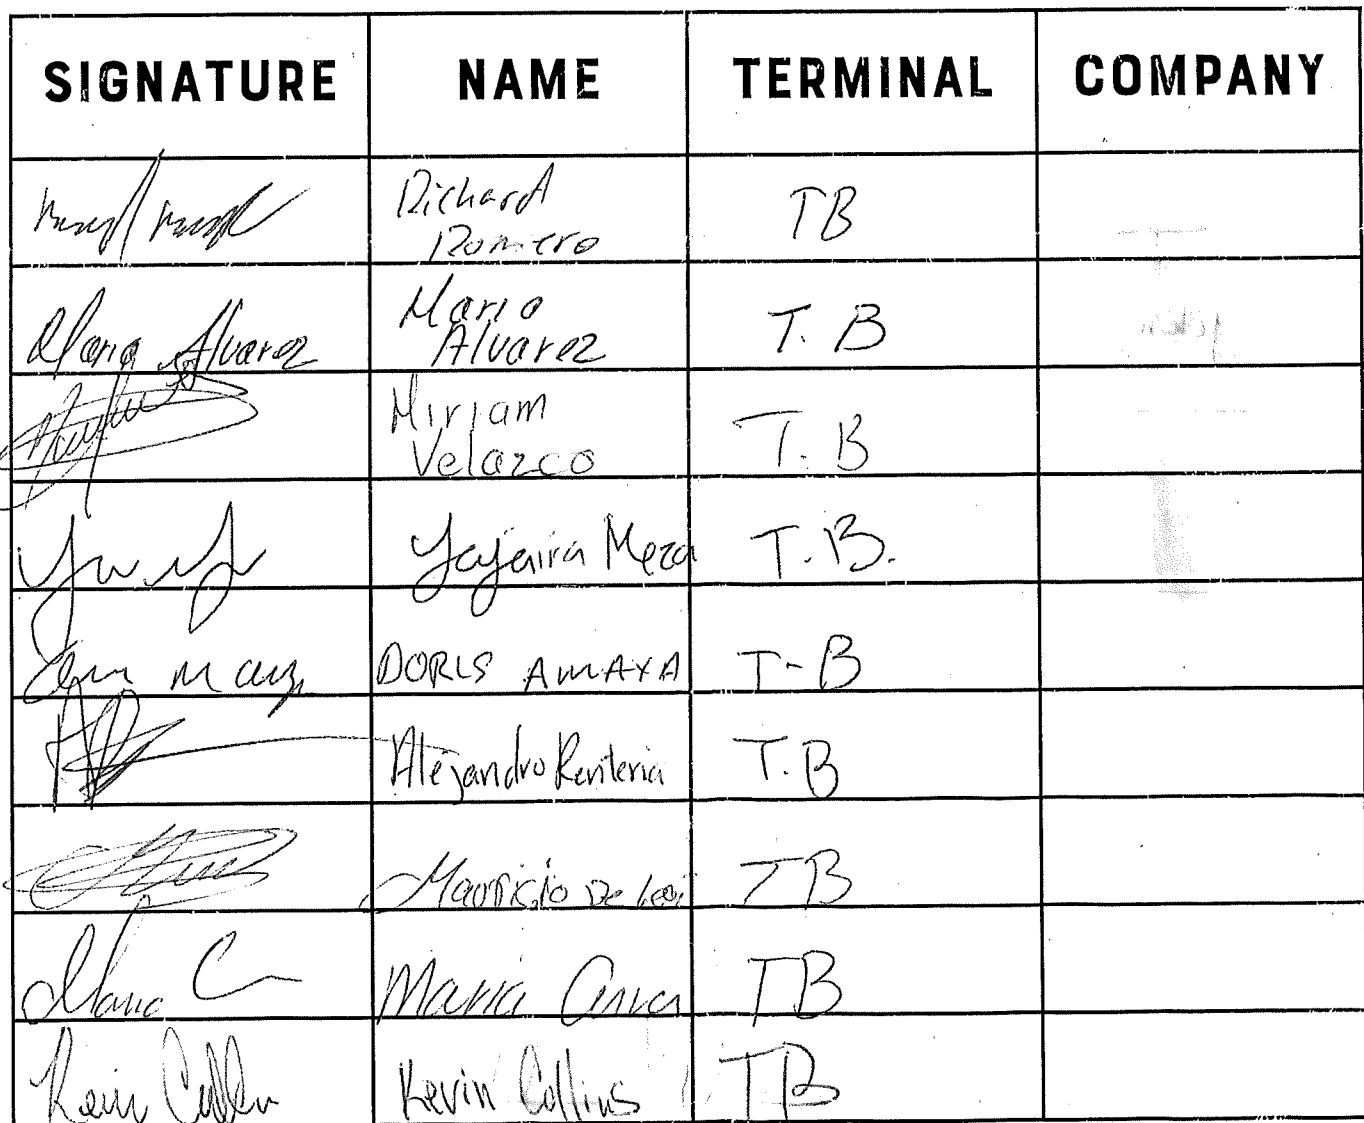 SIGNATURE NAME TERMINAL COMPANY
Richard
Romero
TB
Maria Alvarez
Maria
Alvarez
T. B
Miriam
Velazco
T. B
Yajaira Meza
T. B.
DORIS AMAYA
T-B
Alejandro Renteria
T. B
Mauricio De
TB
Maria
Maria
TB
Kevin Collins
Kevin Collins
TB